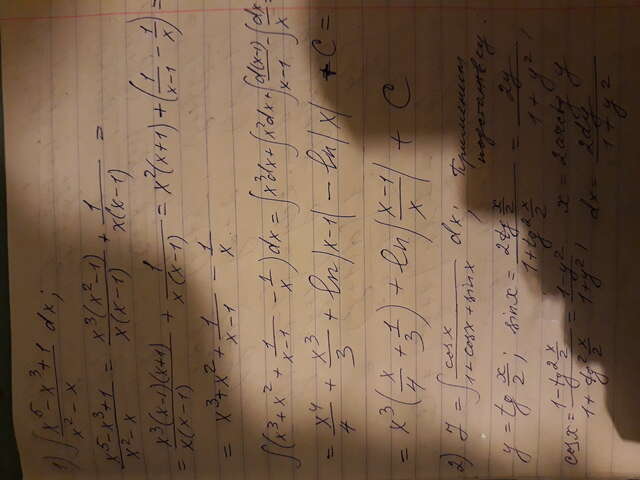 1) ∫ (x⁵ - x³ + 1)/(x² - x) dx;
(x⁵ - x³ + 1)/(x² - x) = x³(x² - 1)/(x(x - 1)) + 1/(x(x - 1)) =
= x³(x - 1)(x + 1)/(x(x - 1)) + 1/(x(x - 1)) = x²(x + 1) + (1/(x - 1) - 1/x) =
= x³ + x² + 1/(x - 1) - 1/x.
∫(x³ + x² + 1/(x - 1) - 1/x)dx = ∫x³dx + ∫x²dx + ∫d(x - 1)/(x - 1) - ∫dx/x =
= x⁴/4 + x³/3 + ln|x - 1| - ln|x| + C =
= x³(x/4 + 1/3) + ln|(x - 1)/x| + C
2) J = ∫ cosx/(1 + cosx + sinx) dx; Применим
подстановку.
y = tg x/2; sinx = (2tg x/2)/(1 + tg² x/2) = 2y/(1 + y²);
cosx = (1 - tg² x/2)/(1 + tg² x/2) = (1 - y²)/(1 + y²); x = 2arctg y
dx = 2dy/(1 + y²)